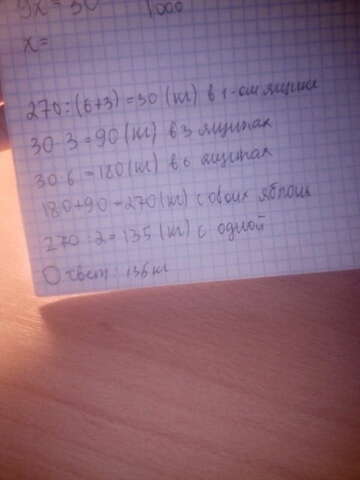 9x = 30
1000
x =
270 : (6+3) = 30 (кг) в 1-ом ящике
30 · 3 = 90 (кг) в 3 ящиках
30 · 6 = 180 (кг) в 6 ящиках
180 + 90 = 270 (кг) с обоих яблонь
270 : 2 = 135 (кг) с одной
Ответ: 136 кг